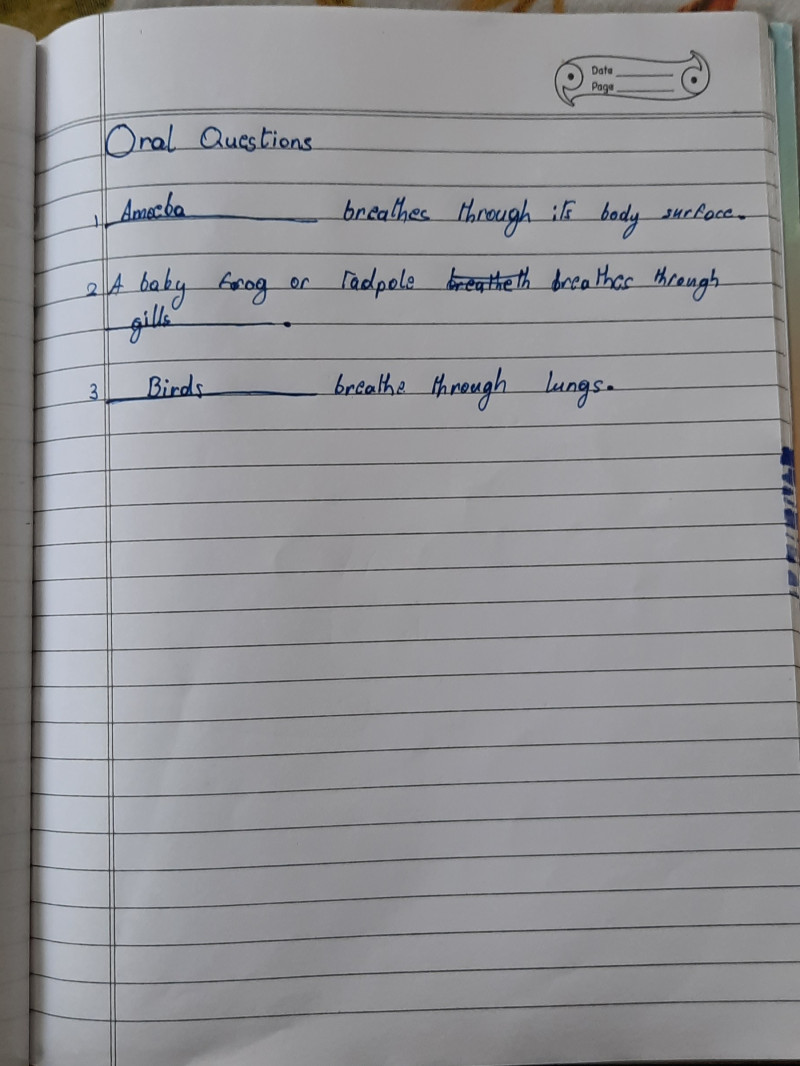 Date
Page
Oral Questions
1 Amoeba breathes through its body surface.
2 A baby frog or tadpole breatheth breathes through
gills .
3 Birds breathe through lungs.